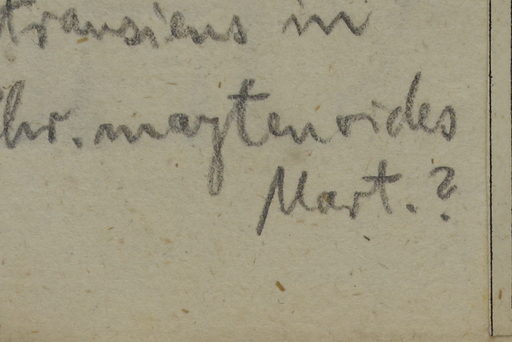 transiens in
Chr. maytenoides
Mart.?